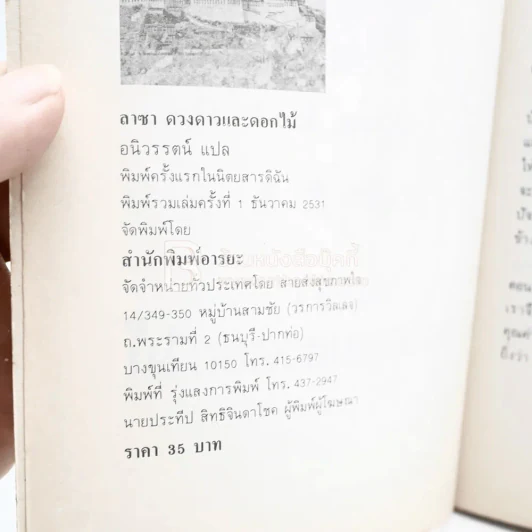 ลาซา ดวงดาวและดอกไม้
อนิวรรตน์ แปล
พิมพ์ครั้งแรกในนิตยสารดิฉัน
พิมพ์รวมเล่มครั้งที่ 1 ธันวาคม 2531
จัดพิมพ์โดย
สำนักพิมพ์อารยะ
จัดจำหน่ายทั่วประเทศโดย สายส่งสุขภาพใจ
14/349-350 หมู่บ้านสามชัย (วรการวิลเลจ)
ถ.พระรามที่ 2 (ธนบุรี-ปากท่อ)
บางขุนเทียน 10150 โทร. 415-6797
พิมพ์ที่ รุ่งแสงการพิมพ์ โทร. 437-2947
นายประทีป สิทธิจินดาโชค ผู้พิมพ์ผู้โฆษณา
ราคา 35 บาท